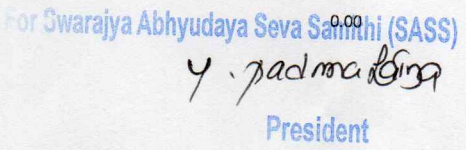 For Swarajya Abhyudaya Seva Samithi (SASS)
0.00
y. padma
President